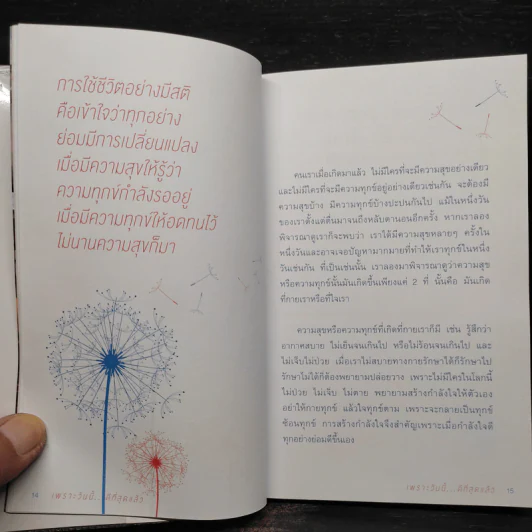 การใช้ชีวิตอย่างมีสติ
คือเข้าใจว่าทุกอย่าง
ย่อมมีการเปลี่ยนแปลง
เมื่อมีความสุขให้รู้ว่า
ความทุกข์กำลังรออยู่
เมื่อมีความทุกข์ให้อดทนไว้
ไม่นานความสุขก็มา
14
เพราะวันนี้... ดีที่สุดแล้ว
คนเราเมื่อเกิดมาแล้ว ไม่มีใครที่จะมีความสุขอย่างเดียว
และไม่มีใครที่จะมีความทุกข์อยู่อย่างเดียวเช่นกัน จะต้องมี
ความสุขบ้าง มีความทุกข์บ้างปะปนกันไป แม้ในหนึ่งวัน
ของเราตั้งแต่ตื่นมาจนถึงหลับตานอนอีกครั้ง หากเราลอง
พิจารณาดูเราก็จะพบว่า เราได้มีความสุขหลายๆ ครั้งใน
หนึ่งวันและอาจเจอปัญหามากมายที่ทำให้เราทุกข์ในหนึ่ง
วันเช่นกัน ที่เป็นเช่นนั้น เราลองมาพิจารณาดูว่าความสุข
หรือความทุกข์นั้นมันเกิดขึ้นเพียงแค่ 2 ที่ นั้นคือ มันเกิด
ที่กายเราหรือที่ใจเรา
ความสุขหรือความทุกข์ที่เกิดที่กายเราก็มี เช่น รู้สึกว่า
อากาศสบาย ไม่เย็นจนเกินไป หรือไม่ร้อนจนเกินไป และ
ไม่เจ็บไม่ป่วย เมื่อเราไม่สบายทางกายรักษาได้ก็รักษาไป
รักษาไม่ได้ก็ต้องพยายามปล่อยวาง เพราะไม่มีใครในโลกนี้
ไม่ป่วย ไม่เจ็บ ไม่ตาย พยายามสร้างกำลังใจให้ตัวเอง
อย่าให้กายทุกข์ แล้วใจทุกข์ตาม เพราะจะกลายเป็นทุกข์
ซ้อนทุกข์ การสร้างกำลังใจจึงสำคัญเพราะเมื่อกำลังใจดี
ทุกอย่างย่อมดีขึ้นเอง
เพราะวันนี้... ดีที่สุดแล้ว
15